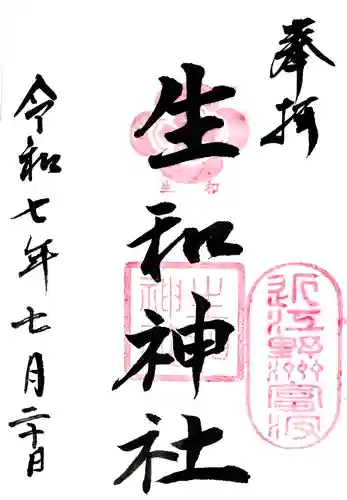 奉拝
生和神社
令和七年七月二十日
生和
近江野洲冨波